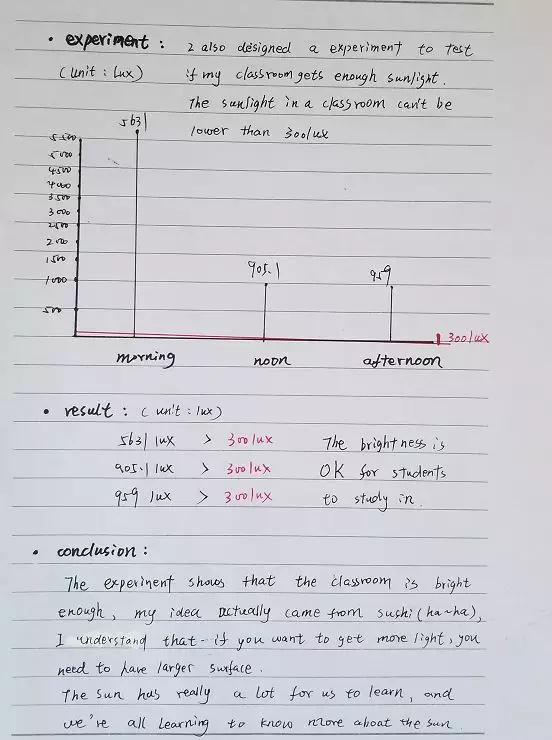 • experiment : 2 also designed a experiment to test
(unit : Lux) if my classroom gets enough sunlight.
The sunlight in a classroom can't be
lower than 300lux
5631
5500
5000
4500
4000
3500
3000
2500
2000
1500
1000
500
905.1
959
300lux
morning noon afternoon
• result : (unit : lux)
5631 lux > 300lux The brightness is
905.1 lux > 300lux OK for students
959 lux > 300lux to study in.
• conclusion :
The experiment shows that the classroom is bright
enough, my idea actually came from sushi (ha~ha),
I understand that - if you want to get more light, you
need to have larger surface.
The sun has really a lot for us to learn, and
we're all learning to know more about the sun.